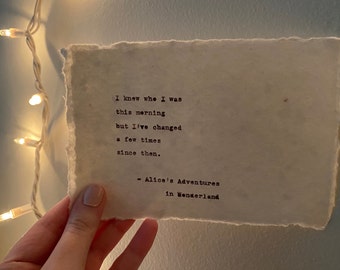 I knew who I was
this morning
but I've changed
a few times
since then.
- Alice's Adventures
in Wonderland